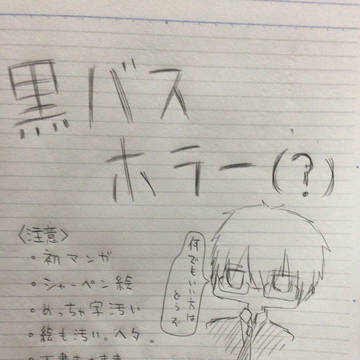 黒バス
ホラー(?)
〈注意〉
・初マンガ
・シャーペン絵
・めっちゃ字汚い
・絵も汚い。ヘタ。
何でもいい方は
どうぞ